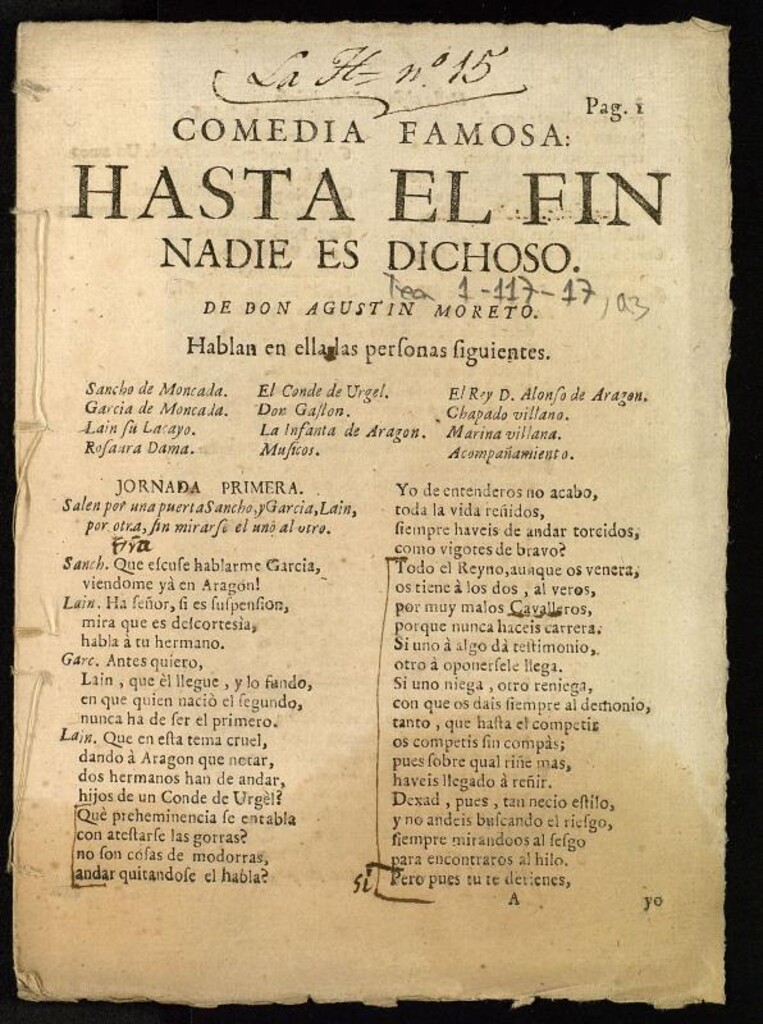 La H= nº 15
Pag. 1
COMEDIA FAMOSA:
HASTA EL FIN
NADIE ES DICHOSO.
Tea 1-117-17, a3
DE DON AGUSTIN MORETO.
Hablan en ella las perſonas ſiguientes.
Sancho de Moncada. El Conde de Urgel. El Rey D. Alonſo de Aragon.
Garcia de Moncada. Don Gaſton. Chapado villano.
Lain ſu Lacayo. La Infanta de Aragon. Marina villana.
Roſaura Dama. Muſicos. Acompañamiento.
JORNADA PRIMERA.
Salen por una puerta Sancho, y Garcia, Lain,
por otra, ſin mirarſe el uno al otro.
Sanch. Que eſcuſe hablarme Garcia,
viendome yà en Aragon!
Lain. Ha ſeñor, ſi es ſuſpenſion,
mira que es deſcortesia,
habla à tu hermano.
Garc. Antes quiero,
Lain, que èl llegue, y lo fundo,
en que quien naciò el ſegundo,
nunca ha de ſer el primero.
Lain. Que en eſta tema cruel,
dando à Aragon que notar,
dos hermanos han de andar,
hijos de un Conde de Urgèl?
Què preheminencia ſe entabla
con ateſtarſe las gorras?
no ſon coſas de modorras,
andar quitandoſe el habla?
Yo de entenderos no acabo,
toda la vida reñidos,
ſiempre haveis de andar torcidos,
como vigotes de bravo?
Todo el Reyno, aunque os venera,
os tiene à los dos, al veros,
por muy malos Cavalleros,
porque nunca haceis carrera.
Si uno à algo dà teſtimonio,
otro à oponerſele llega.
Si uno niega, otro reniega,
con que os dais ſiempre al demonio,
tanto, que haſta el competir
os competis ſin compàs;
pues ſobre qual riñe mas,
haveis llegado à reñir.
Dexad, pues, tan necio eſtilo,
y no andeis buſcando el rieſgo,
ſiempre mirandoos al ſeſgo
para encontraros al hilo.
si Pero pues tu te detienes,
A yo